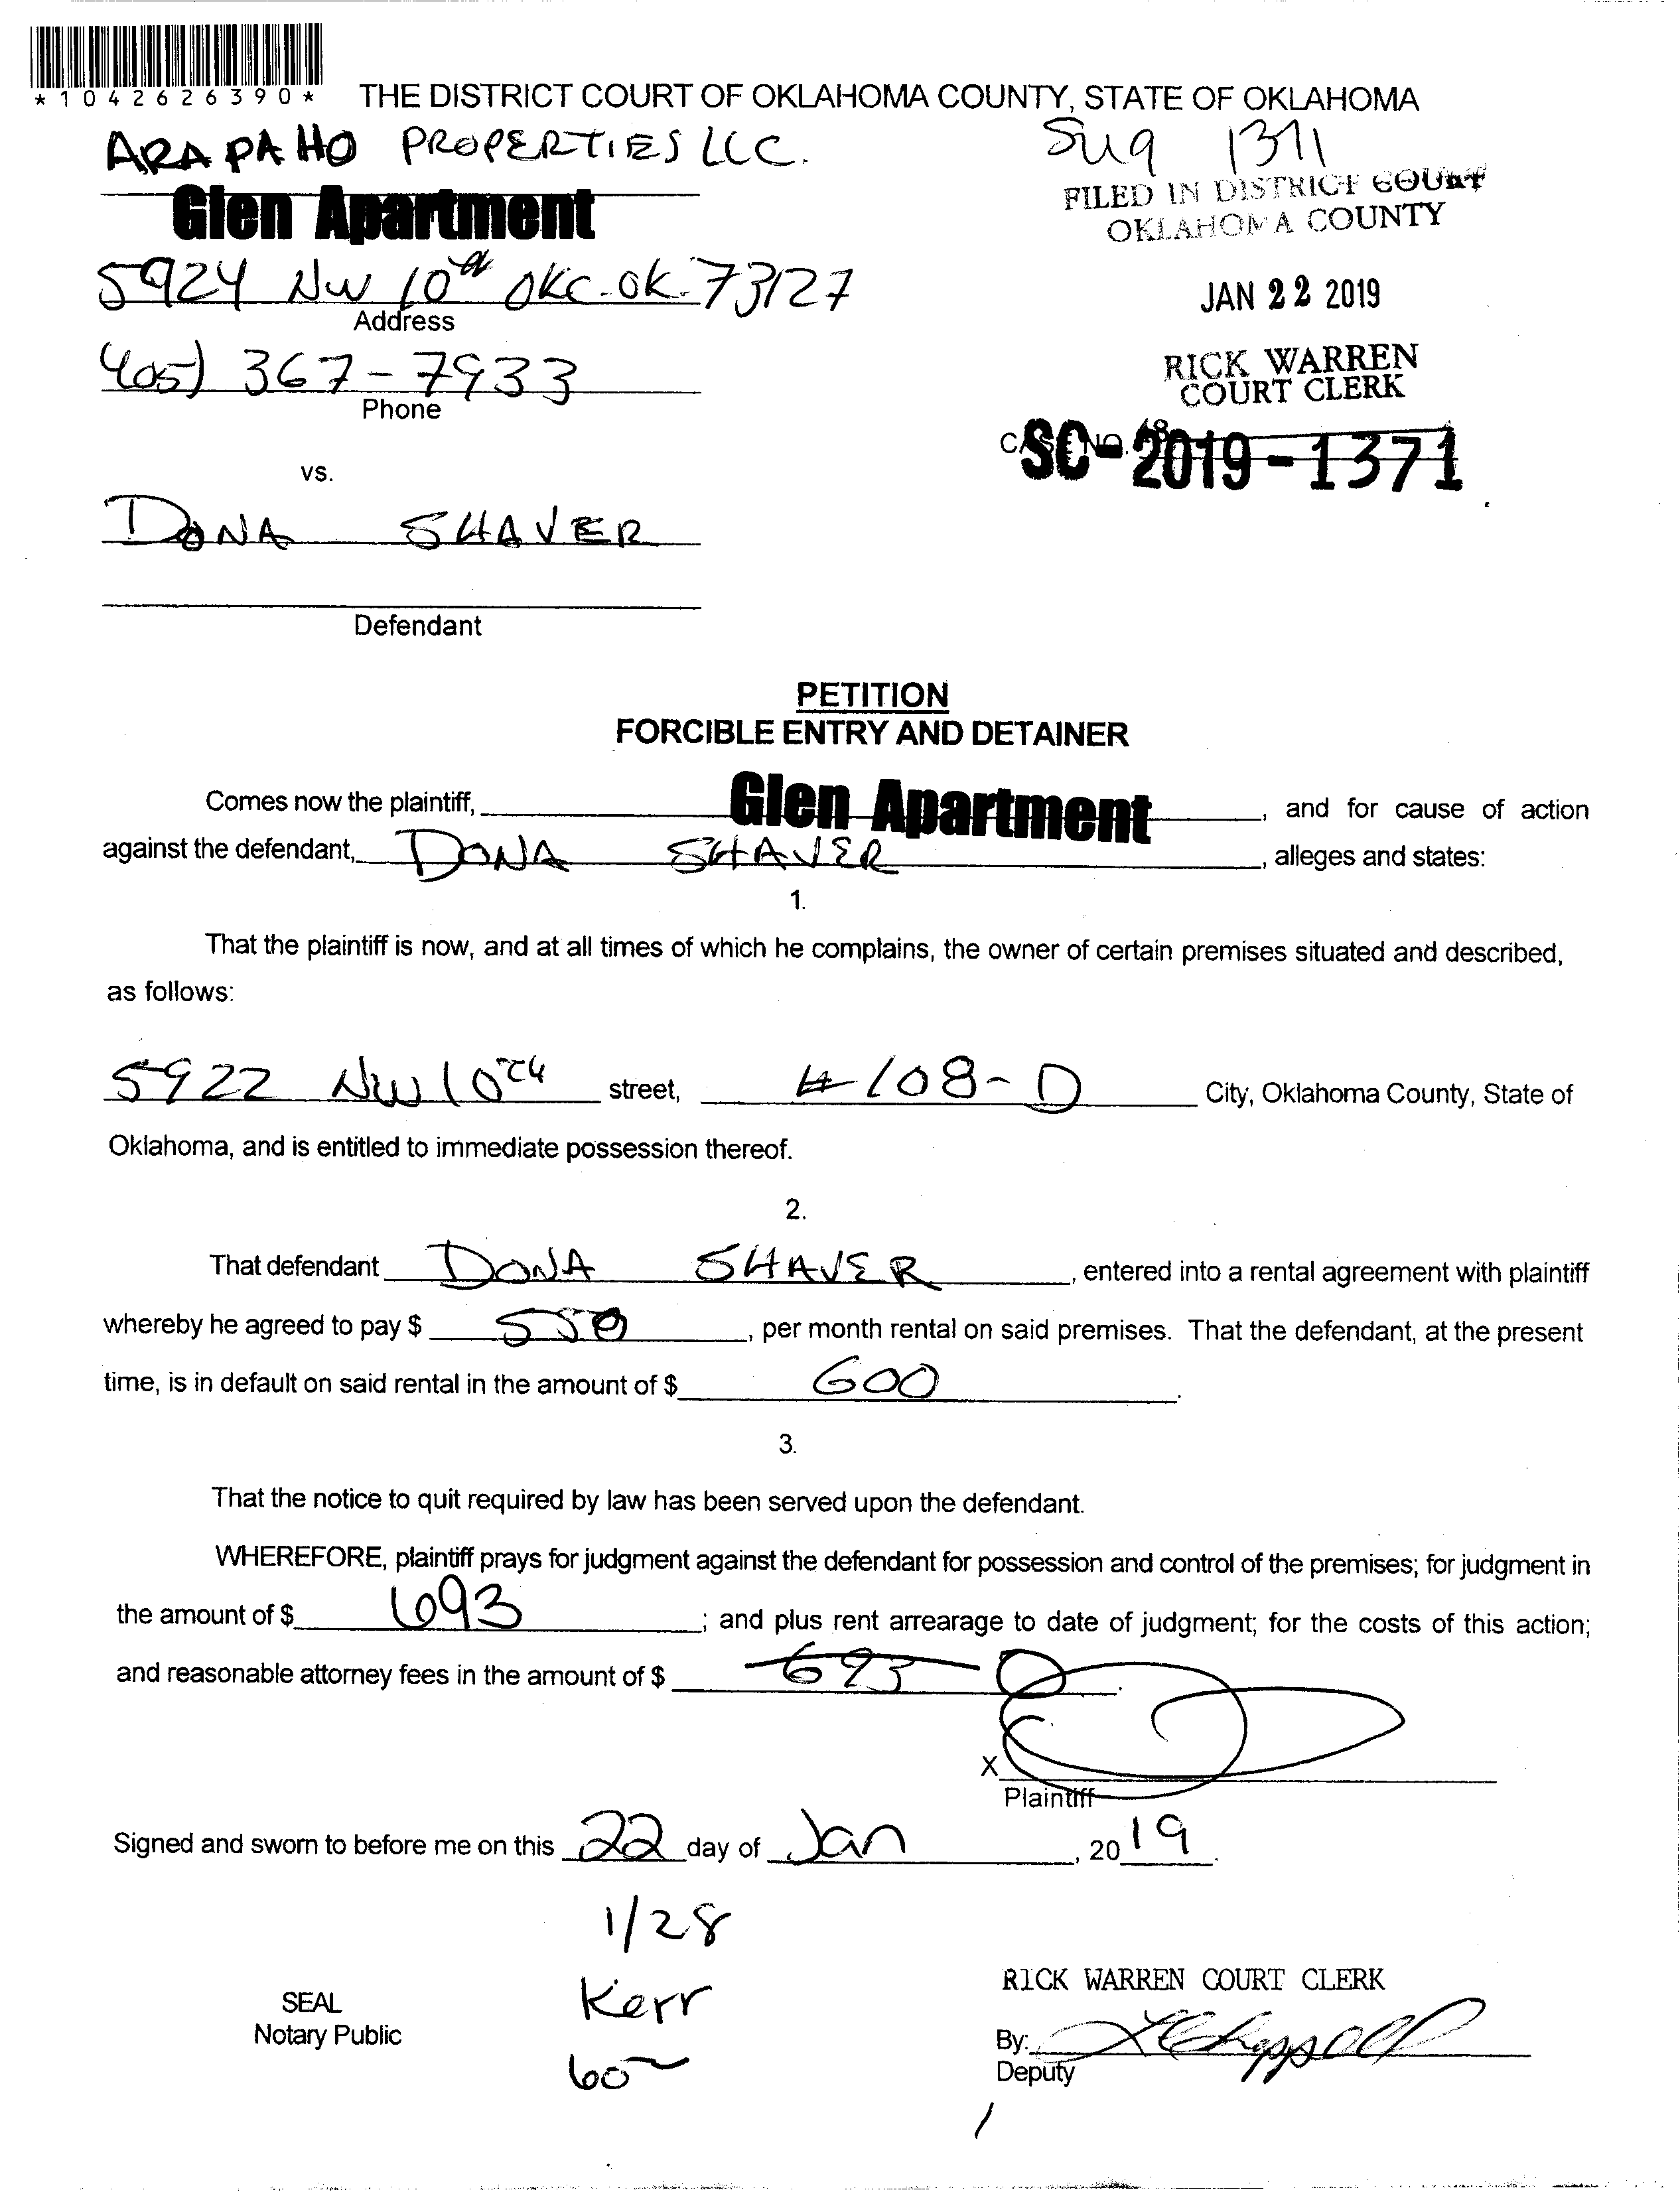 *1042626390*
THE DISTRICT COURT OF OKLAHOMA COUNTY, STATE OF OKLAHOMA
ARAPAHO PROPERTIES LLC.
1371
FILED IN DISTRICT COURT
OKLAHOMA COUNTY
Glen Apartment
5924 NW 10th OKC. OK. 73127
Address
JAN 22 2019
405) 367-7933
Phone
RICK WARREN
COURT CLERK
CASE NO.
SC-2019-1371
vs.
DONA SHAVER
Defendant
PETITION
FORCIBLE ENTRY AND DETAINER
Comes now the plaintiff, Glen Apartment, and for cause of action
against the defendant, DONA SHAVER, alleges and states:
1.
That the plaintiff is now, and at all times of which he complains, the owner of certain premises situated and described,
as follows:
5922 NW 10th street, #108-D City, Oklahoma County, State of
Oklahoma, and is entitled to immediate possession thereof.
2.
That defendant DONA SHAVER, entered into a rental agreement with plaintiff
whereby he agreed to pay $ 550, per month rental on said premises. That the defendant, at the present
time, is in default on said rental in the amount of $ 600.
3.
That the notice to quit required by law has been served upon the defendant.
WHEREFORE, plaintiff prays for judgment against the defendant for possession and control of the premises; for judgment in
the amount of $ 693; and plus rent arrearage to date of judgment; for the costs of this action;
and reasonable attorney fees in the amount of $ 693 0.
X
Plaintiff
Signed and sworn to before me on this 22 day of Jan, 2019.
1/28
Kerr
RICK WARREN COURT CLERK
SEAL
Notary Public
By:
Deputy